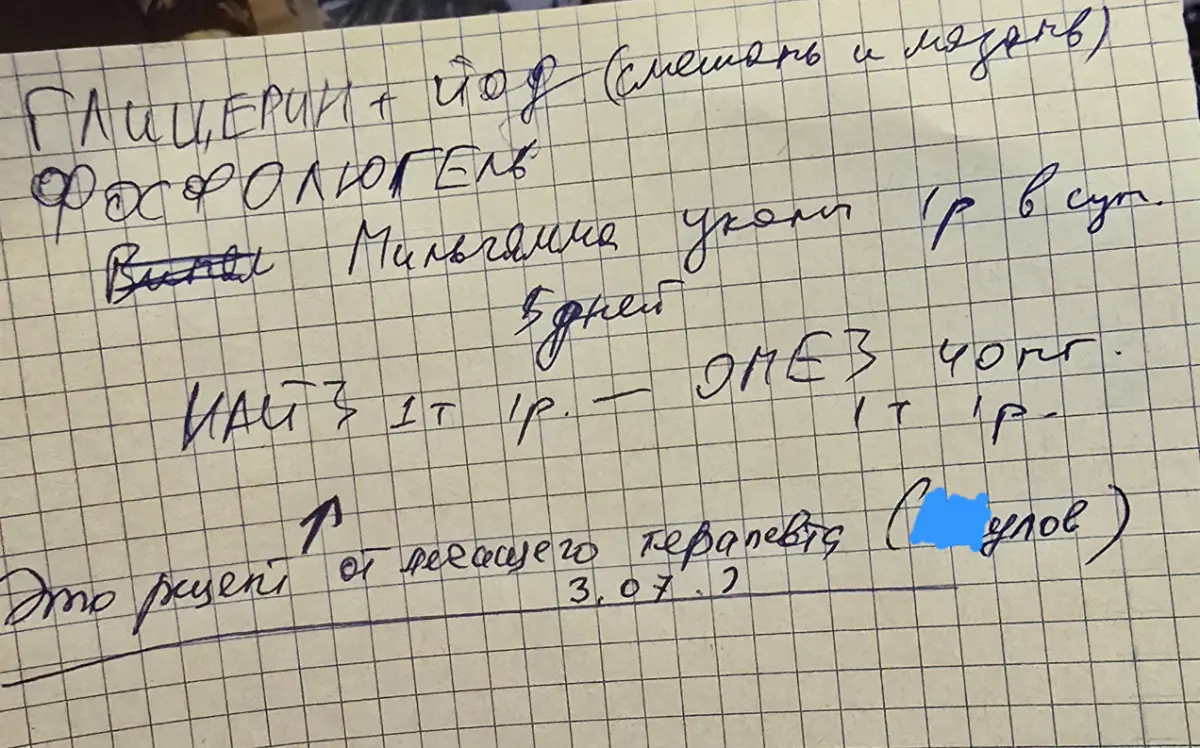 ГЛИЦЕРИН + йод (смешать и мазать)
ФОСФОЛЮГЕЛЬ
Мильгамма уколы 1р в сут.
5 дней
НАЙЗ 1т 1р. — ОМЕЗ 40 мг.
1т 1р.
Это рецепт ↑ от лечащего терапевта (улов)
3.07.